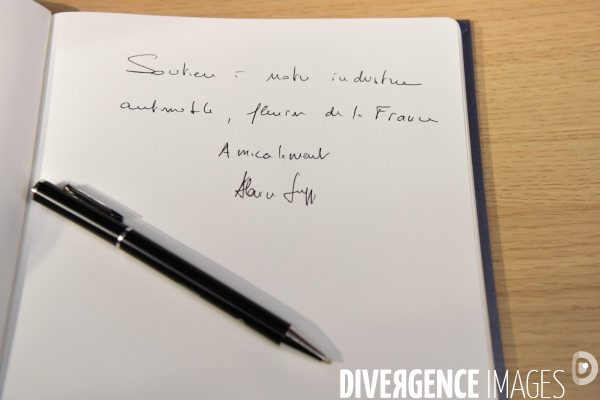 Soutien à notre industrie
automobile, fleuron de la France
Amicalement
Alain Jupp
DIVERGENCE IMAGES